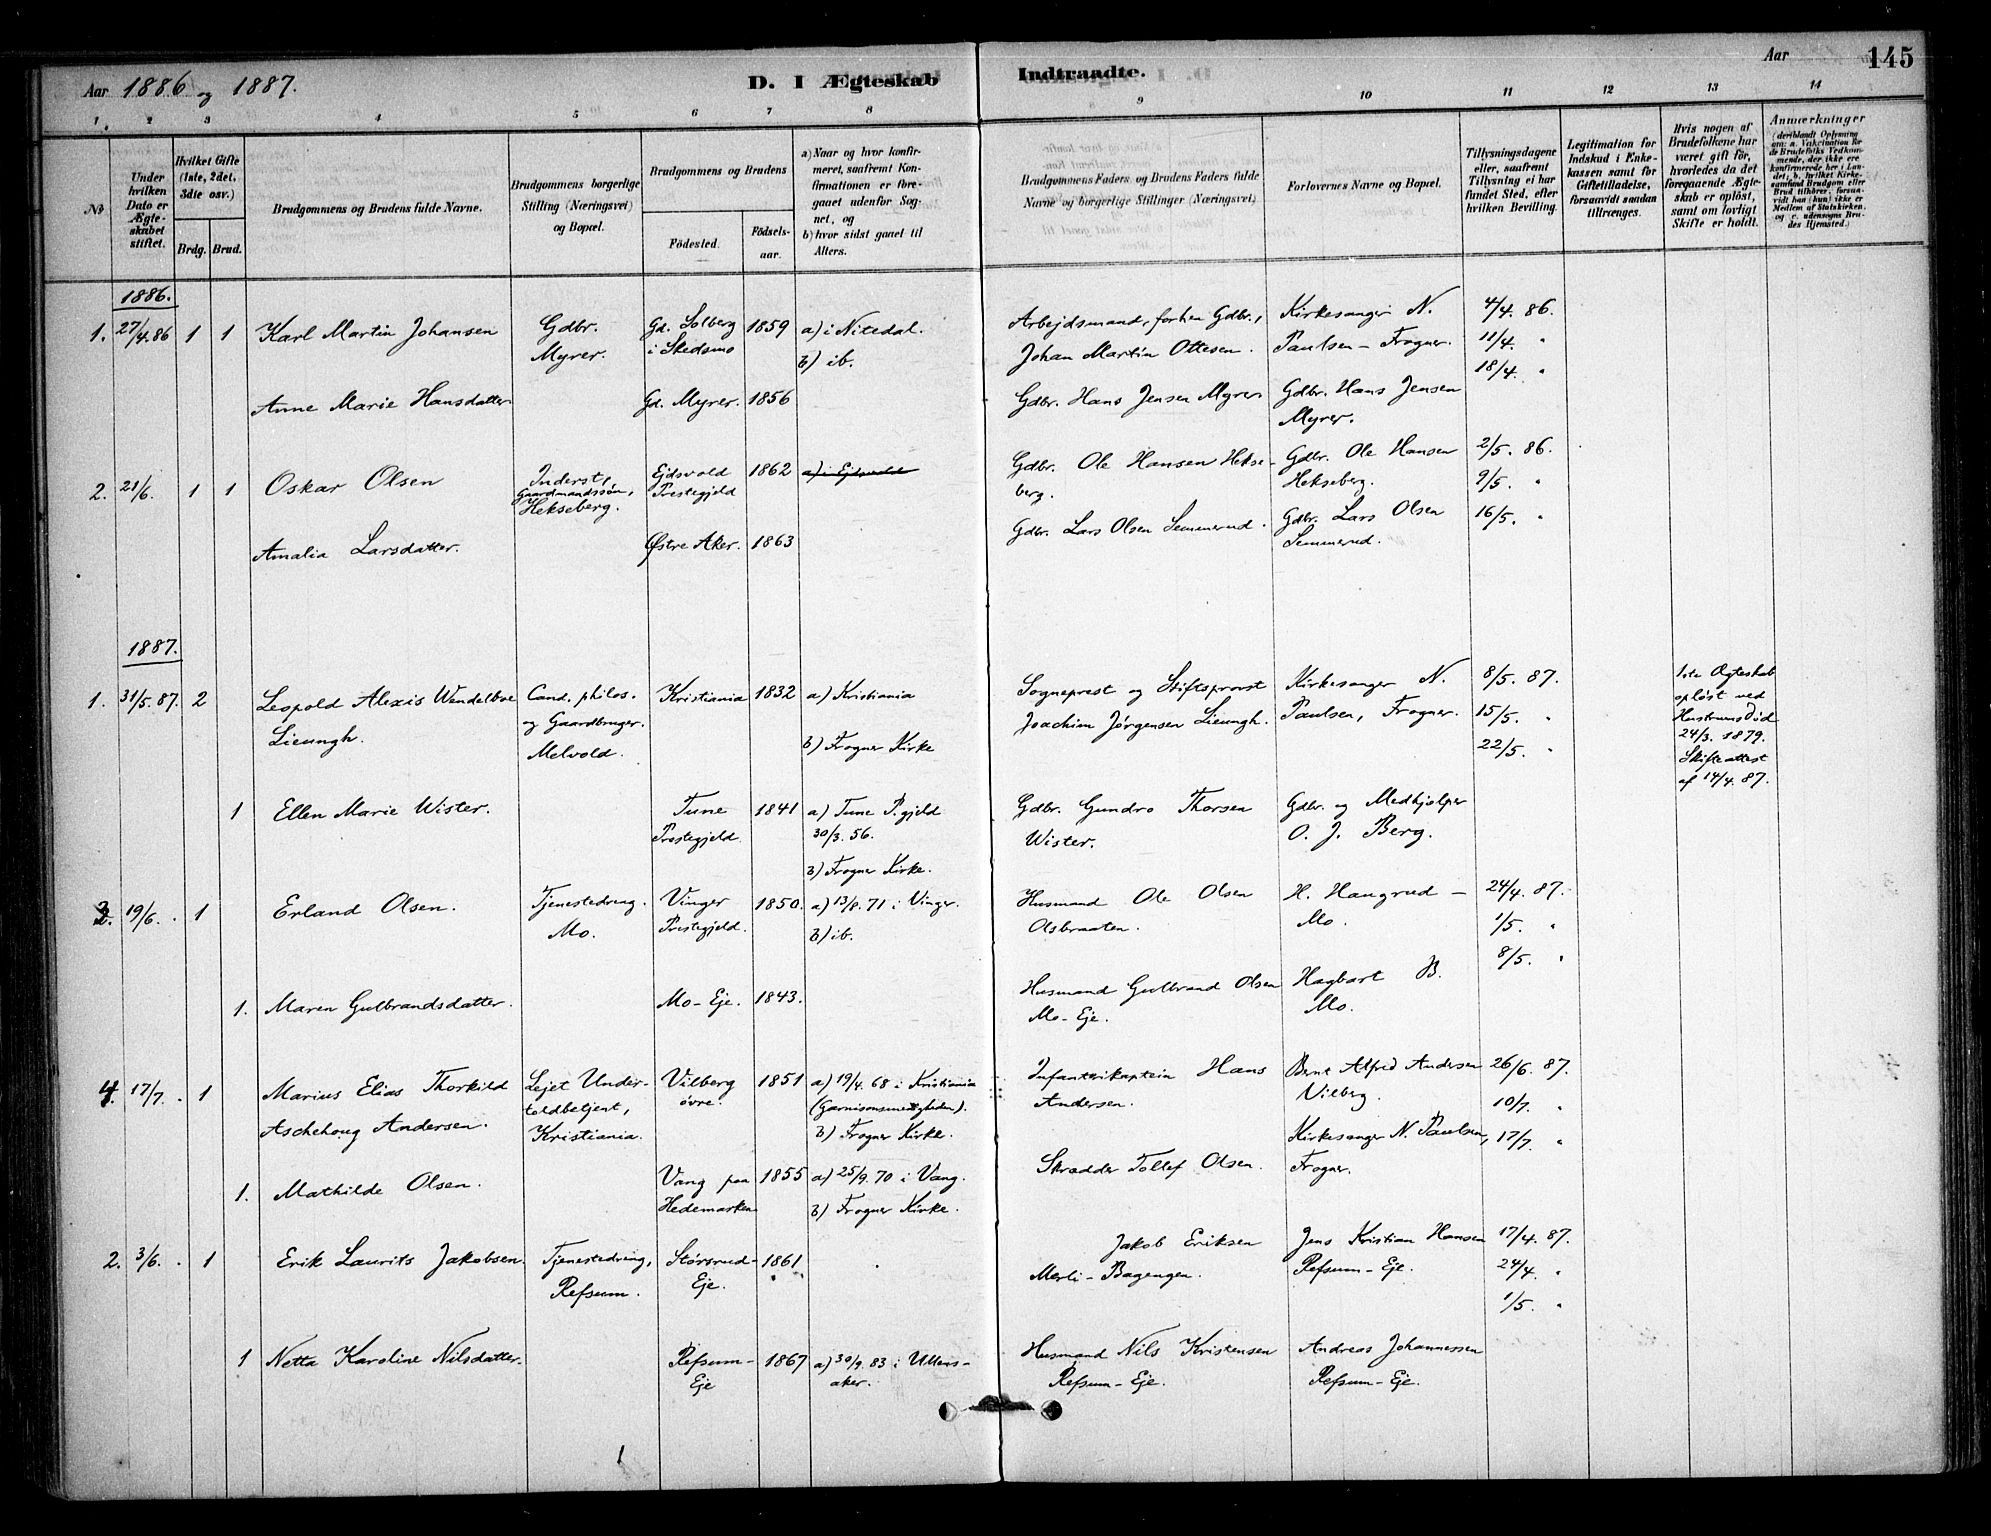 Aar 1886 og 1887.
D. I Ægteskab
Indtraadte.
Aar
145
1.
2
3
4
5
6
7
8
9
10
11
12
13
14
№
Under hvilken Dato er Ægteskabet stiftet.
Hvilket Gifte (1ste, 2det, 3die osv.)
Brdg.
Brud.
Brudgommens og Brudens fulde Navne.
Brudgommens borgerlige Stilling (Næringsvei) og Bopæl.
Brudgommens og Brudens
Födested.
Födsels-aar.
a) Naar og hvor konfirmeret, saafremt Konfirmationen er foregaaet udenfor Sognet, og
b) hvor sidst gaaet til Alters.
Brudgommens Faders og Brudens Faders fulde Navne og borgerlige Stillinger (Næringsvei)
Forlovernes Navne og Bopæl.
Tillysningsdagene eller, saafremt Tillysning ei har fundet Sted, efter hvilken Bevilling.
Legitimation for Indskud i Enkekassen samt for Giftetilladelse, forsaavidt saadan tiltrænges.
Hvis nogen af Brudefolkene har været gift för, hvorledes da det foregaaende Ægteskab er oplöst, samt om lovligt Skifte er holdt.
Anmærkninger
(deriblandt Oplysning om: a. Vakcination for Brudefolks Vedkommende, der ikke ere konfirmerede her i Landet; b. hvilket Kirkesamfund Brudgom eller Brud tilhører, forsaavidt han (hun) ikke er Medlem af Statskirken, og c. udensogns Brudes Hjemsted.)
1886.
1. 27/4.86 1 1 Karl Martin Johansen
Gdbr.
Myrer.
Gd. Solberg
i Skedsmo
1859
a) i Nitedal.
b) ib.
Arbejdsmand, forhen Gdbr.,
Johan Martin Ottesen.
Kirkesanger N.
Paulsen - Frogner.
4/4. 86.
11/4. "
18/4. "
Anne Marie Hansdatter
Gd. Myrer. 1856
Gdbr. Hans Jensen Myrer
Gdbr. Hans Jensen
Myrer.
2. 21/6. 1 1 Oskar Olsen
Inderst,
Gaardmandssøn,
Hekseberg.
Ejdsvold
Prestegjeld
1862
a) i Ejdsvold
Gdbr. Ole Hansen Hekse-
berg.
Gdbr. Ole Hansen
Hekseberg.
2/5. 86
9/5. "
16/5. "
Amalia Larsdatter.
Østre Aker. 1863
Gdbr. Lars Olsen Semmerud.
Gdbr. Lars Olsen
Semmerud.
1887.
1. 31/5. 87. 2 Leopold Alexis Wendelboe
Lieungh.
Cand. philos.
og Gaardbruger.
Melvold.
Kristiania 1832
a) Kristiania
b) Frogner Kirke
Sogneprest og Stiftsprovst
Joachim Jørgensen Lieungh.
Kirkesanger N.
Paulsen, Frogner.
8/5. 87.
15/5. "
22/5. "
1ste Ægteskab
opløst ved
Hustruens Død
24/3. 1879.
Skifteattest
af 14/4. 87.
1 Ellen Marie Wister.
Tune
Prestegjeld.
1841
a) Tune P.gjeld
30/3. 56.
b) Frogner Kirke.
Gdbr. Gundro Thorsen
Wister.
Gdbr. og Medhjelper
O. J. Berg.
3. 19/6. 1 Erland Olsen.
Tjenestedreng.
Mo.
Vinger
Prestegjeld.
1850.
a) 13/8. 71 i Vinger.
b) ib.
Husmand Ole Olsen
Olsbraaten.
H. Haugrud -
Mo.
24/4. 87.
1/5. "
8/5. "
1. Maren Gulbrandsdatter.
Mo-Eje. 1843.
Husmand Gulbrand Olsen
Mo-Eje.
Hagbart B.
Mo.
4. 17/7. 1 Marius Elias Thorkild
Aschehoug Andersen.
Lejet Under-
toldbetjent,
Kristiania.
Vilberg
øvre.
1851
a) 19/4. 68 i Kristiania
(Garnisonsmenigheden).
b) Frogner Kirke.
Infanterikaptein Hans
Andersen.
Bernt Alfred Andersen
Vilberg.
26/6. 87.
10/7. "
17/7. "
1. Mathilde Olsen.
Vang paa
Hedemarken
1855
a) 25/9. 70 i Vang.
b) Frogner Kirke.
Skrædder Tollef Olsen.
Kirkesanger N. Paulsen,
Frogner.
2. 3/6. 1 Erik Laurits Jakobsen.
Tjenestedreng,
Refsum.
Størsrud-
Eje.
1861
Jakob Eriksen
Merli-Bagengen.
Jens Kristian Hansen
Refsum-Eje.
17/4. 87.
24/4. "
1/5. "
1 Netta Karoline Nilsdatter.
Refsum-
Eje
1867
a) 30/9. 83 i Ullens-
aker.
Husmand Nils Kristensen
Refsum-Eje.
Andreas Johannessen
Refsum-Eje.